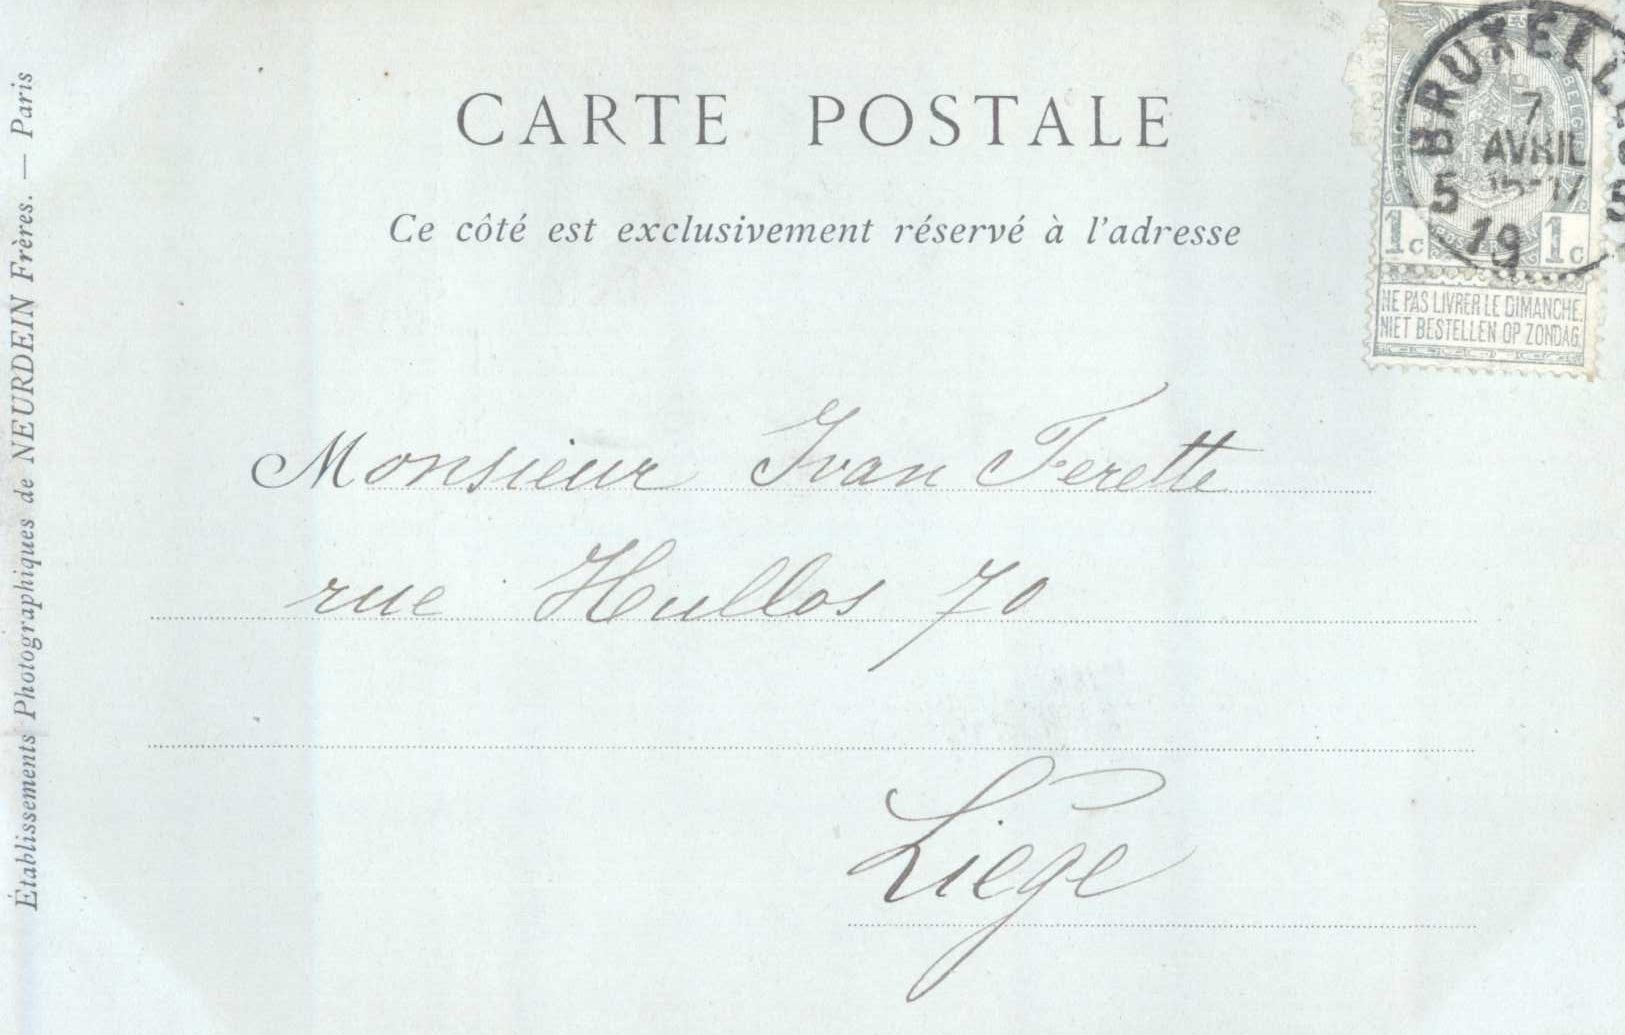 CARTE POSTALE
Ce côté est exclusivement réservé à l'adresse
BRUXELLE
7
AVRIL
15-17
5 5
19
1c 1c
NE PAS LIVRER LE DIMANCHE.
NIET BESTELLEN OP ZONDAG.
Monsieur Ivan Ferette
rue Hullos 70
Liège
Établissements Photographiques de NEURDEIN Frères. — Paris